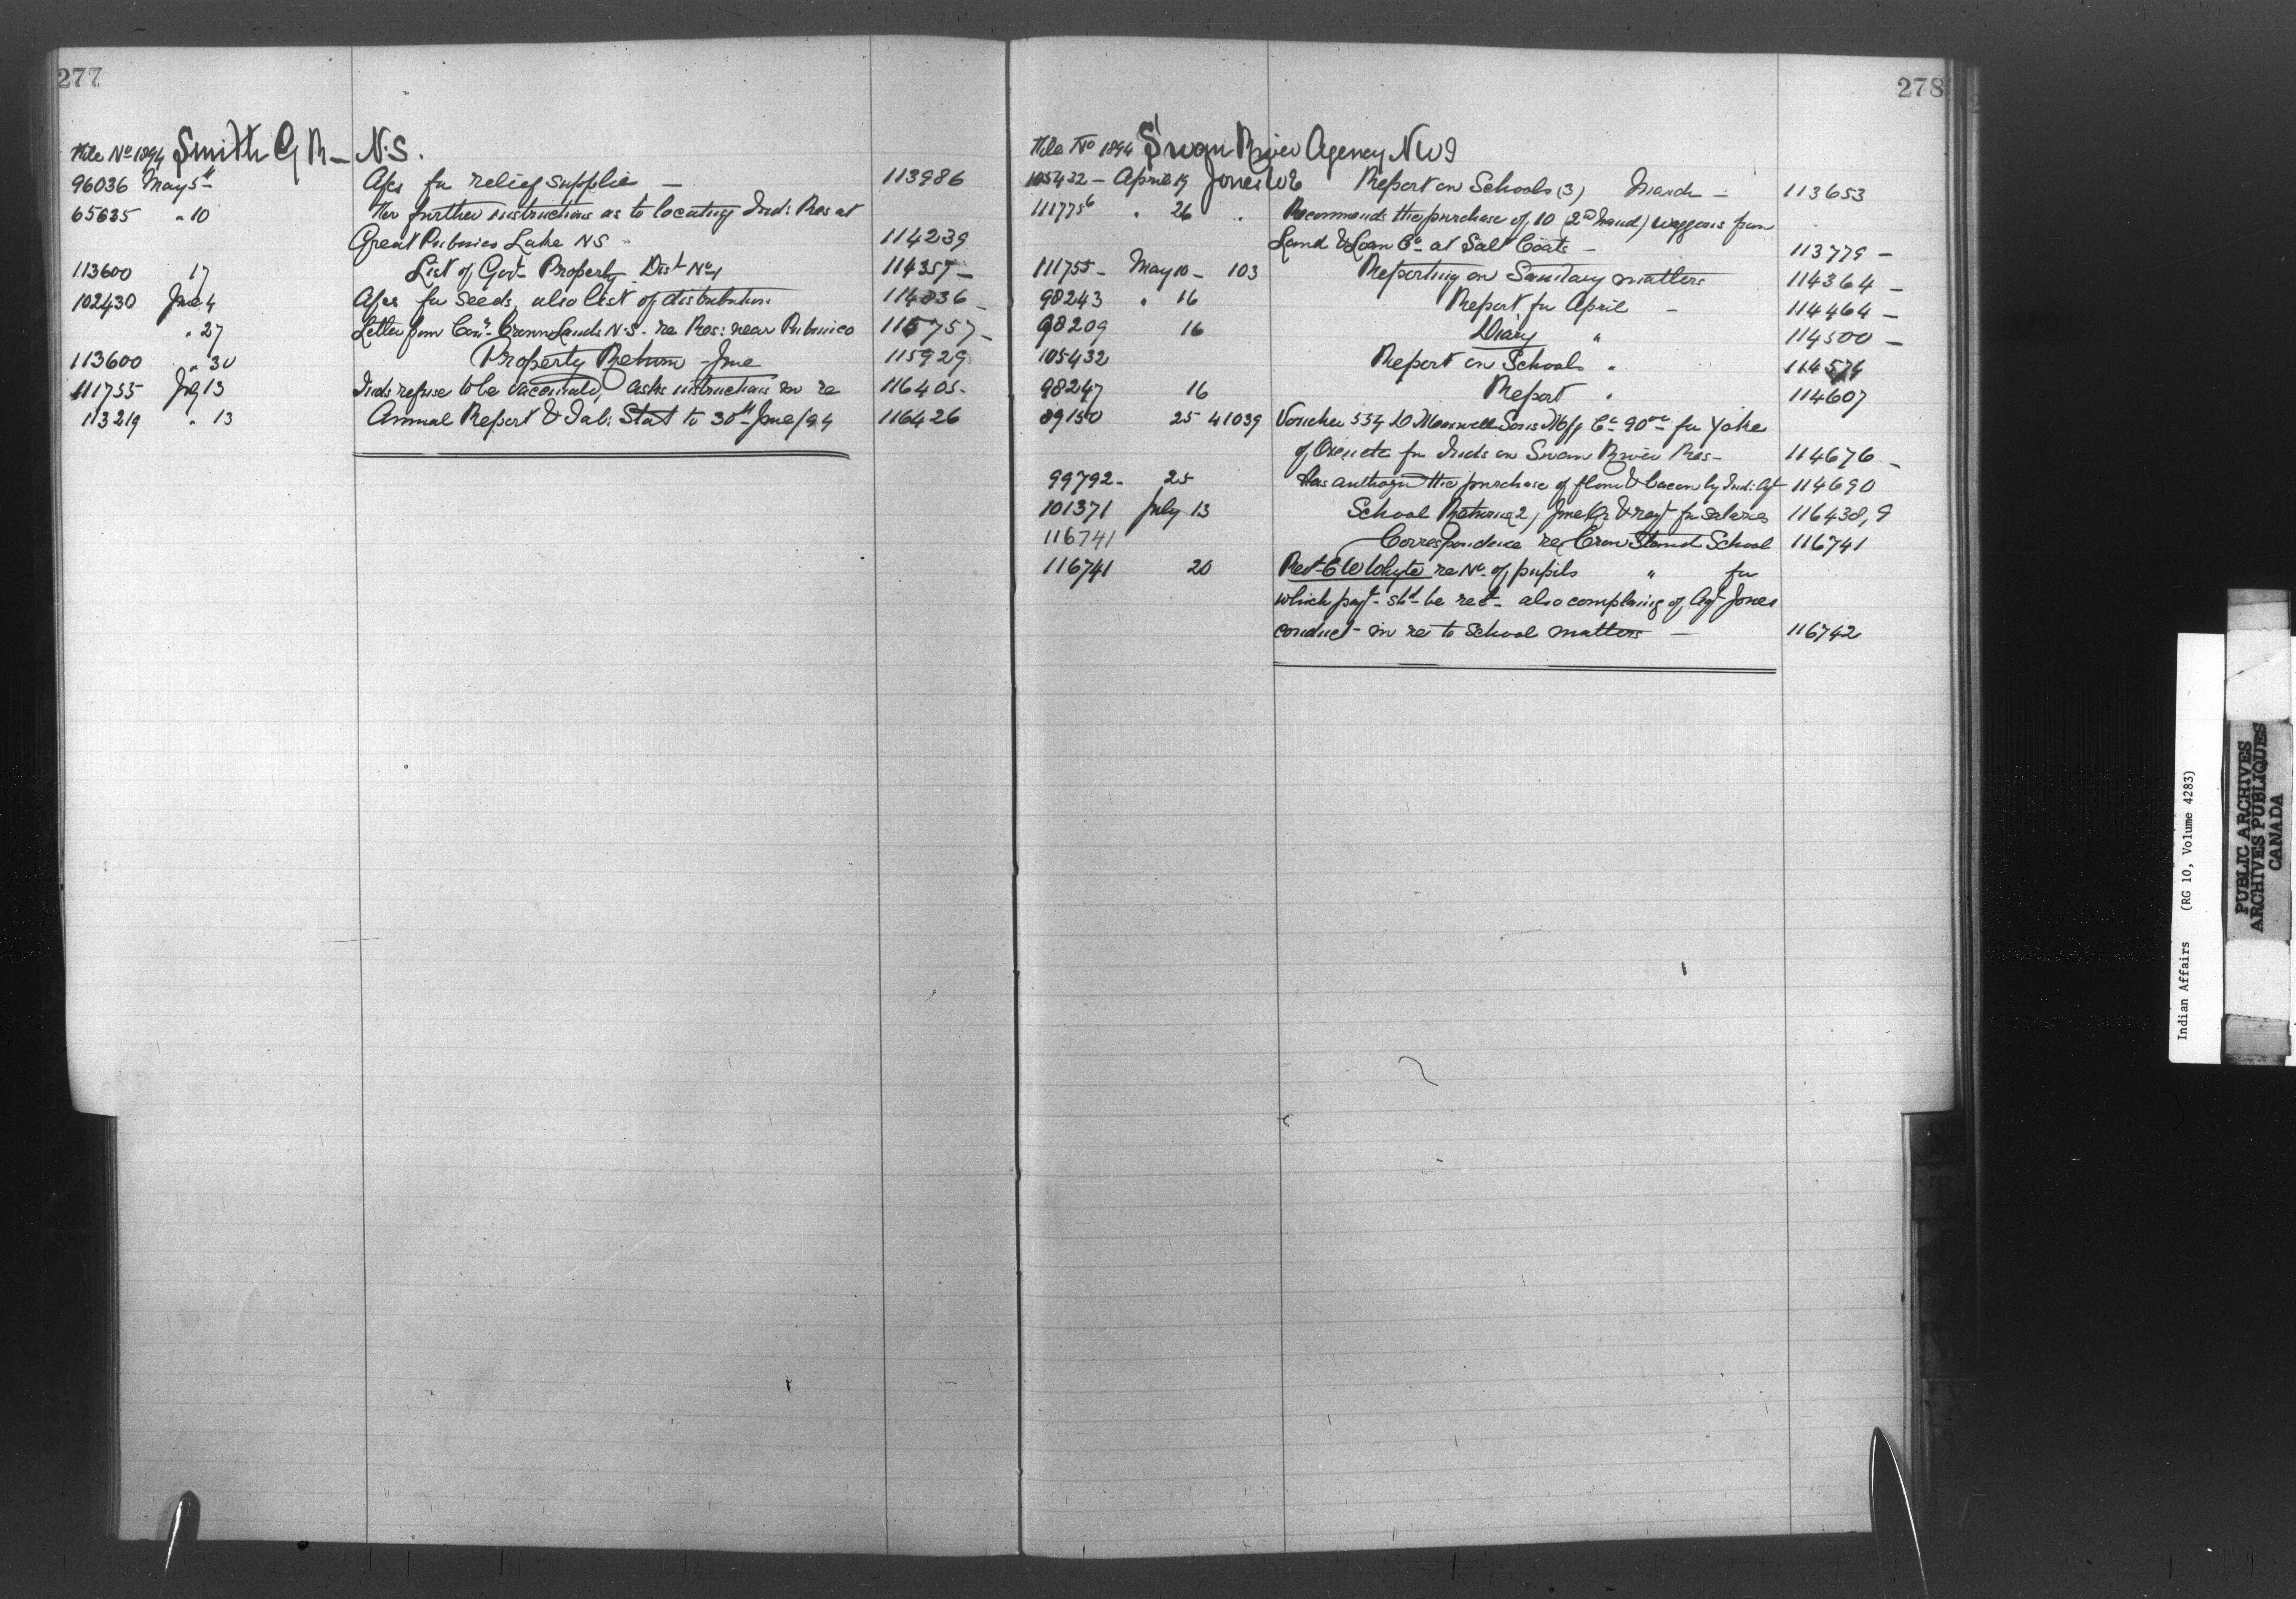 277
File No 1894 Smith G R — N.S.
96036 May 5th Apn for relief supplies — 113986
65635 " 10 for further instructions as to locating Ind: Res at
Great Pubnico Lake NS 114239
113600 17 List of Govt Property Dist No 1 114357 —
102430 June 4 Apn for seeds, also list of distribution 114836 —
" 27 Letter from Comr Crown Lands N.S. re Res: near Pubnico 115757 —
113600 " 30 Property Return June 115929
111755 July 13 Inds refuse to be vaccinated, asks instructions in re 116405 -
113219 " 13 Annual Report & Tab: Stat to 30th June/94 116426
278
File No 1894 Swan River Agency NW
105432 — April 19 Jones W E Report on Schools (3) March — 113653
111775 " 26 " Recommends the purchase of 10 (2nd hand) waggons from
Land & Loan Co at Salt Coats — 113779 —
111755 — May 10 — 103 Reporting on Sanitary matters 114364 —
98243 " 16 Report for April — 114464 —
98209 16 Diary " 114500 —
105432 Report on Schools " 114574
98247 16 Report " 114607
89150 25 41039 Voucher 534 D Maxwell Sons Mfg Co 90 for Yoke
of Oxen etc for Inds on Swan River Res — 114676 —
99792 — 25 Has authorized the purchase of flour & bacon by Ind: Agt 114690
101371 July 13 School Returns (2) June Qr & reqt for salaries 116438,9
116741 Correspondence re Crow Stand School 116741
116741 20 Revd C W Whyte re No. of pupils " for
which payt shd be recd — also complaing of Agt Jones
conduct in re to School matters — 116742
Indian Affairs (RG 10, Volume 4283)
PUBLIC ARCHIVES
ARCHIVES PUBLIQUES
CANADA